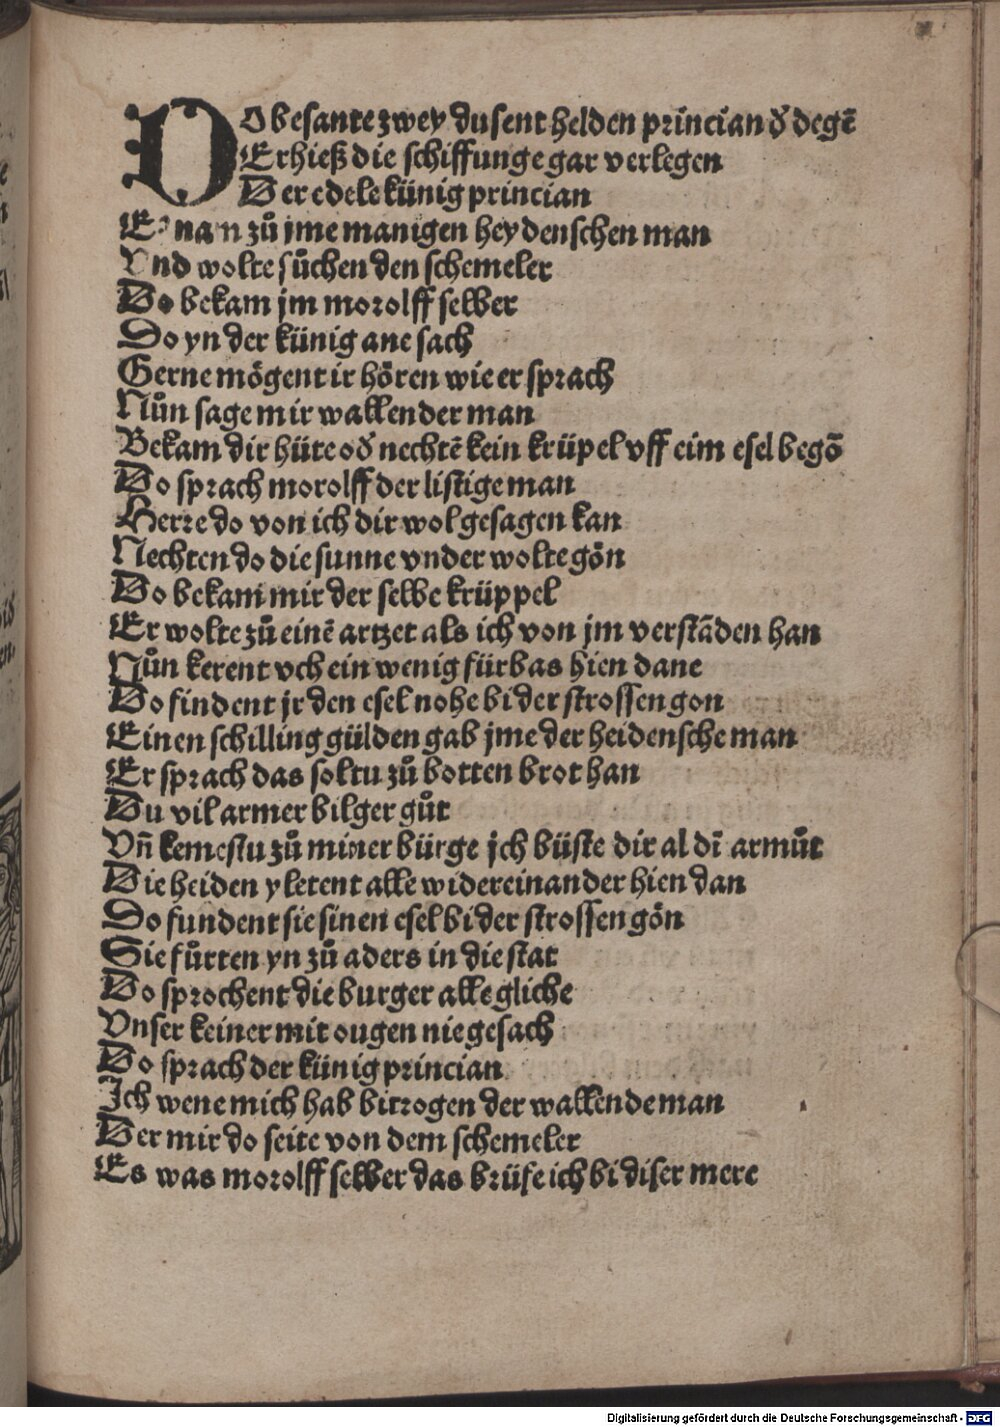 DO besante zwey dusent helden princian d̕ degē
Er hieß die schiffunge gar verlegen
Der edele künig princian
Er nam zuͦ jme manigen heydenschen man
Vnd wolte suͦchen den schemeler
Do bekam jm morolff selber
Do yn der künig ane sach
Gerne moͤgent ir hoͤren wie er sprach
Nuͦn sage mir wallender man
Bekam dir hüte od̕ nechtē kein krüpel vff eim esel begō
Do sprach morolff der listige man
Herre do von ich dir wol gesagen kan
Nechten do die sunne vnder wolte gōn
Do bekam mir der selbe krüppel
Er wolte zuͦ einē artzet als ich von jm verstāden han
Nuͦn kerent vch ein wenig fürbas hien dane
Do findent jr den esel nohe bi der strossen gon
Einen schilling gülden gab jme der heidensche man
Er sprach das soltu zuͦ botten brot han
Du vil armer bilger guͦt
Vn̄ kemestu zuͦ miner bürge jch büste dir al dī armuͦt
Die heiden yletent alle widereinander hien dan
Do fundent sie sinen esel bi der strossen gōn
Sie fuͦrten yn zuͦ aders in die stat
Do sprochent die burger alle gliche
Vnser keiner mit ougen nie gesach
Do sprach der künig princian
Ich wene mich hab bitrogen der wallende man
Der mir do seite von dem schemeler
Es was morolff selber das brüfe ich bi diser mere
Digitalisierung gefördert durch die Deutsche Forschungsgemeinschaft - DFG